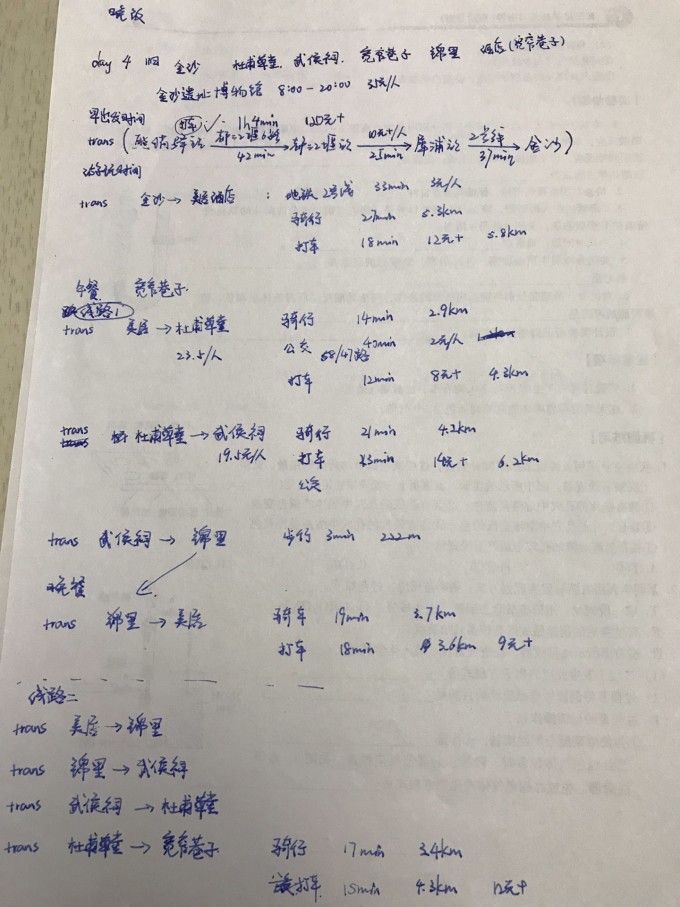 晚饭
day 4 IU 金沙 杜甫草堂、武侯祠、宽窄巷子 锦里 酒店(宽窄巷子)
金沙遗址博物馆 8:00-20:00 35元/人
早出发时间 打车 1h4min 120元+
trans ( 都江堰6路 42min → 都江堰站 10元+/人 25min → 犀浦站 2号线 37min → 金沙)
游玩时间
trans 金沙 → 美居酒店 : 地铁2号线 33min 3元/人
骑行 27min 5.3km
打车 18min 12元+ 5.8km
午餐 宽窄巷子
线路1
trans 美居 → 杜甫草堂 骑行 14min 2.9km
23.5/人 公交 58/47路 40min 2元/人
打车 12min 8元+ 4.3km
trans 杜甫草堂 → 武侯祠 骑行 21min 4.2km
19.5元/人 打车 23min 14元+ 6.2km
公交
trans 武侯祠 → 锦里 步行 3min 222m
晚餐
trans 锦里 → 美居 骑车 19min 3.7km
打车 18min 3.6km 9元+
线路二
trans 美居 → 锦里
trans 锦里 → 武侯祠
trans 武侯祠 → 杜甫草堂
trans 杜甫草堂 → 宽窄巷子 骑行 17min 3.4km
打车 15min 4.3km 12元+